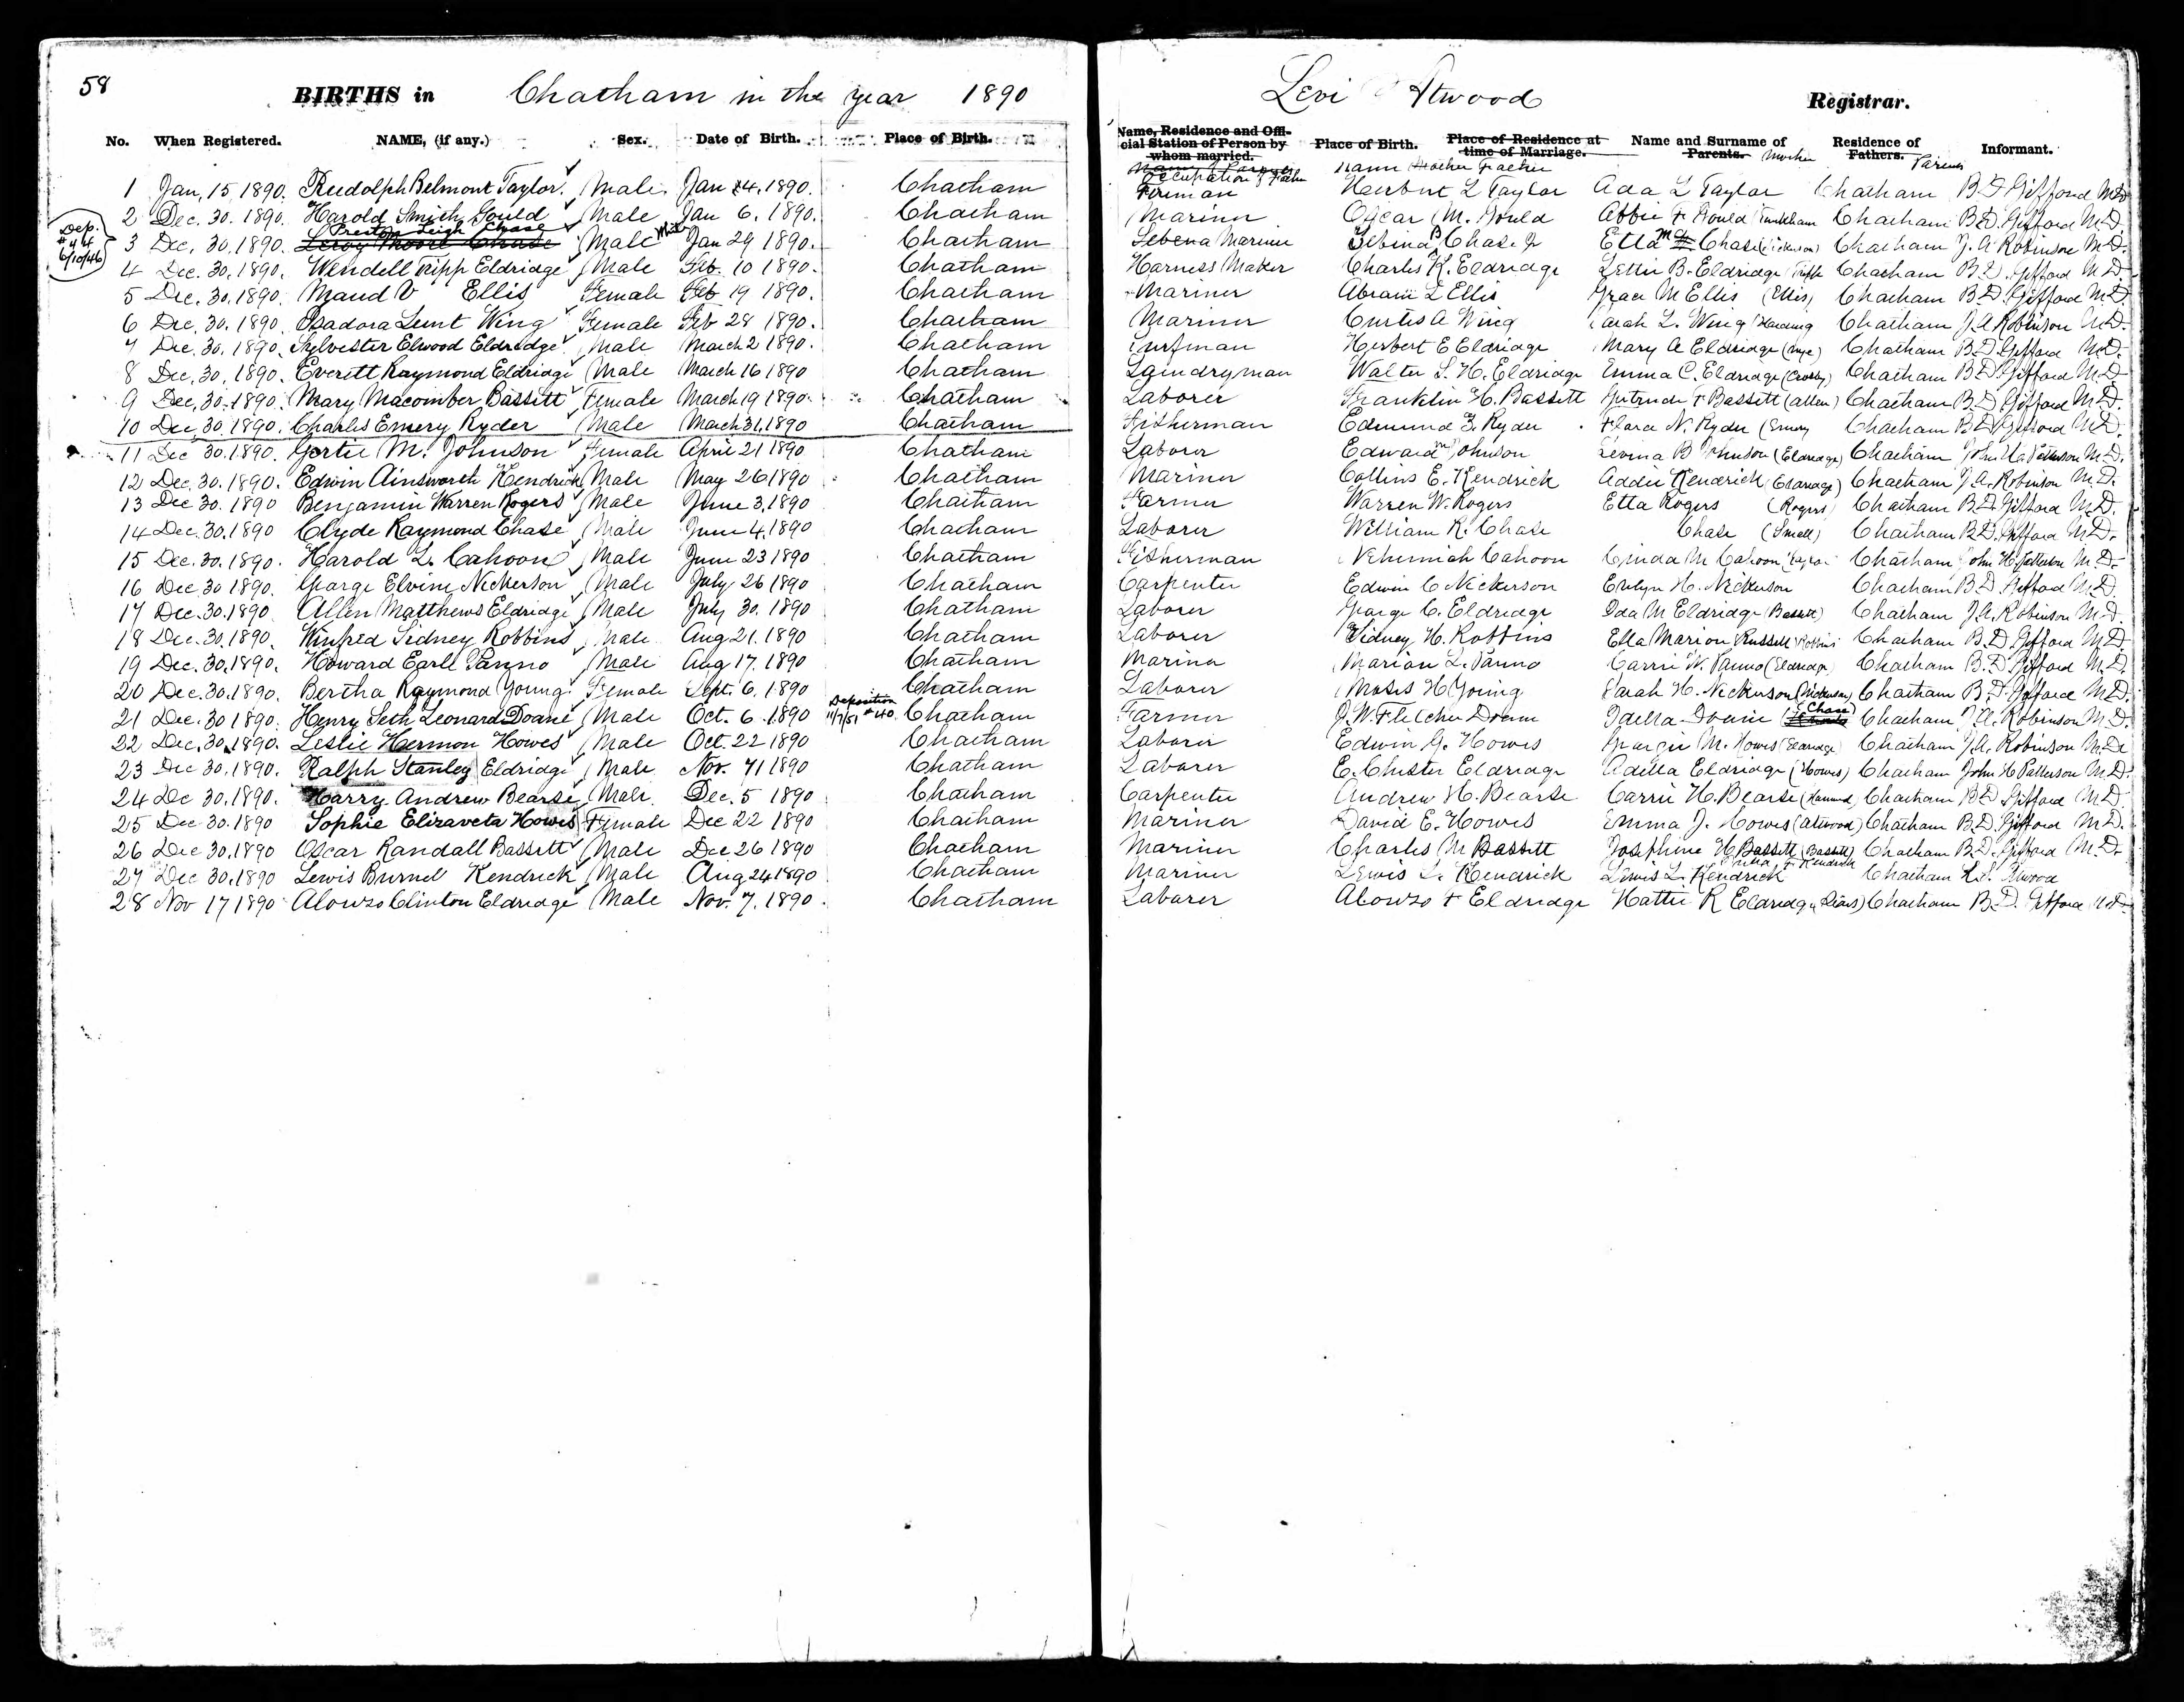 58
BIRTHS in Chatham in the year 1890 Levi Atwood Registrar.
No. When Registered. NAME, (if any.) Sex. Date of Birth. Place of Birth. Name, Residence and Offi-cial Station of Person by whom married. Place of Birth. Place of Residence at time of Marriage. Name and Surname of Parents. Mother Residence of Fathers. Parents Informant.
Occupation of Father Name Father
1 Jan, 15, 1890. Rudolph Belmont Taylor. Male Jan 4, 1890. Chatham Fireman Herbert L Taylor Ada L Taylor Chatham B. D. Gifford M.D.
2 Dec. 30. 1890. Harold Smith Gould Male Jan 6, 1890. Chatham Mariner Oscar M. Gould Abbie F Gould Chatham B. D. Gifford M.D.
Dep. #44 6/10/46
Preston Leigh Chase
3 Dec, 30, 1890. Leroy Moore Chase Male Jan 29 1890. Chatham Sebena Mariner Sebina B Chase Jr Etta M Chase Chatham J. A. Robinson M.D.
4 Dec. 30, 1890. Wendell Tripp Eldridge Male Feb. 10 1890. Chatham Harness Maker Charles K. Eldridge Lettie B. Eldridge Chatham B. D. Gifford M.D.
5 Dec. 30, 1890. Maud V Ellis Female Feb 19 1890. Chatham Mariner Abram L Ellis Grace M Ellis (Ellis) Chatham B. D. Gifford M.D.
6 Dec. 30. 1890. Isadora Lent Wing Female Feb 28 1890. Chatham Mariner Curtis A Wing Sarah L. Wing Harding Chatham J. A. Robinson M.D.
7 Dec. 30. 1890. Sylvester Elwood Eldridge Male March 2 1890. Chatham Surfman Herbert E Eldridge Mary A Eldridge (Nye) Chatham B. D. Gifford M.D.
8 Dec, 30, 1890. Everett Raymond Eldridge Male March 16 1890 Chatham Laundryman Walter S. H. Eldridge Emma C. Eldridge (Crosby) Chatham B. D. Gifford M.D.
9 Dec, 30, 1890. Mary Macomber Bassett Female March 19 1890. Chatham Laborer Franklin H. Bassett Gertrude F Bassett (Allen) Chatham B. D. Gifford M.D.
10 Dec, 30, 1890. Charles Emery Ryder Male March 31, 1890 Chatham Fisherman Edmund Z. Ryder Flora N. Ryder (Emery Chatham B. D. Gifford M.D.
11 Dec 30. 1890. Gertie M. Johnson Female April 21 1890 Chatham Laborer Edward M Johnson Levina B Johnson (Eldredge) Chatham John H. Patterson M.D.
12 Dec, 30, 1890. Edwin Ainsworth Kendrick Male May 26 1890 Chatham Mariner Collins E. Kendrick Addie Kendrick (Eldridge) Chatham J. A. Robinson M.D.
13 Dec 30. 1890 Benjamin Warren Rogers Male June 3, 1890 Chatham Farmer Warren W. Rogers Etta Rogers (Rogers) Chatham B. D. Gifford M.D.
14 Dec. 30, 1890 Clyde Raymond Chase Male June 4, 1890 Chatham Laborer William R. Chase Chase (Small) Chatham B. D. Gifford M.D.
15 Dec. 30. 1890. Harold L. Cahoon Male June 23 1890 Chatham Fisherman Nehemiah Cahoon Linda M Cahoon Chatham John H. Patterson M.D.
16 Dec, 30 1890. George Elvine Nickerson Male July 26 1890 Chatham Carpenter Edwin C Nickerson Evelyn H. Nickerson Chatham B. D. Gifford M.D.
17 Dec. 30. 1890. Allen Matthews Eldridge Male July 30. 1890 Chatham Laborer George C. Eldridge Ida M Eldridge (Bassett) Chatham J. A. Robinson M.D.
18 Dec. 30. 1890. Winfred Sidney Robbins Male Aug 21. 1890 Chatham Laborer Sidney H. Robbins Ella Marion Russell Robbins Chatham B. D. Gifford M.D.
19 Dec. 30, 1890. Howard Earle Panno Male Aug 17. 1890 Chatham Mariner Marion L. Panno Carrie W. Panno (Eldridge) Chatham B. D. Gifford M.D.
20 Dec. 30. 1890. Bertha Raymond Young Female Sept. 6, 1890 Chatham Laborer Moses H Young Sarah H. Nickerson (Nickerson) Chatham B. D. Gifford M.D.
Deposition 11/7/51 #40
21 Dec. 30 1890. Henry Seth Leonard Doane Male Oct. 6. 1890 Chatham Farmer J. W. Fletcher Doane Idella Doane (Chase) Chatham J. A. Robinson M.D.
22 Dec, 30, 1890. Leslie Hermon Howes Male Oct. 22 1890 Chatham Laborer Edwin G. Howes Georgie M. Howes (Eldredge) Chatham J. A. Robinson M.D.
23 Dec 30, 1890. Ralph Stanley Eldridge Male Nov. 11 1890 Chatham Laborer E. Chester Eldridge Adella Eldridge (Howes) Chatham John H Patterson M.D.
24 De 30, 1890. Harry Andrew Bearse Male Dec. 5 1890 Chatham Carpenter Andrew H. Bearse Carrie H. Bearse (Hammond Chatham B. D. Gifford M.D.
25 Dec 30. 1890 Sophie Elizaveta Howes Female Dec 22 1890 Chatham Mariner David E. Howes Emma J. Howes (Atwood) Chatham B. D. Gifford M.D.
26 Dec 30, 1890 Oscar Randall Bassett Male Dec 26 1890 Chatham Mariner Charles M Bassett Josephine H Bassett (Bassett) Chatham B. D. Gifford M.D.
27 Dec 30. 1890 Lewis Burnel Kendrick Male Aug 24 1890 Chatham Mariner Lewis L. Kendrick Lewis L. Kendrick Chatham L. Atwood
28 Nov 17 1890 Alonzo Clinton Eldridge Male Nov. 7. 1890. Chatham Laborer Alonzo F Eldridge Hattie R Eldridge Chatham B. D. Gifford M.D.